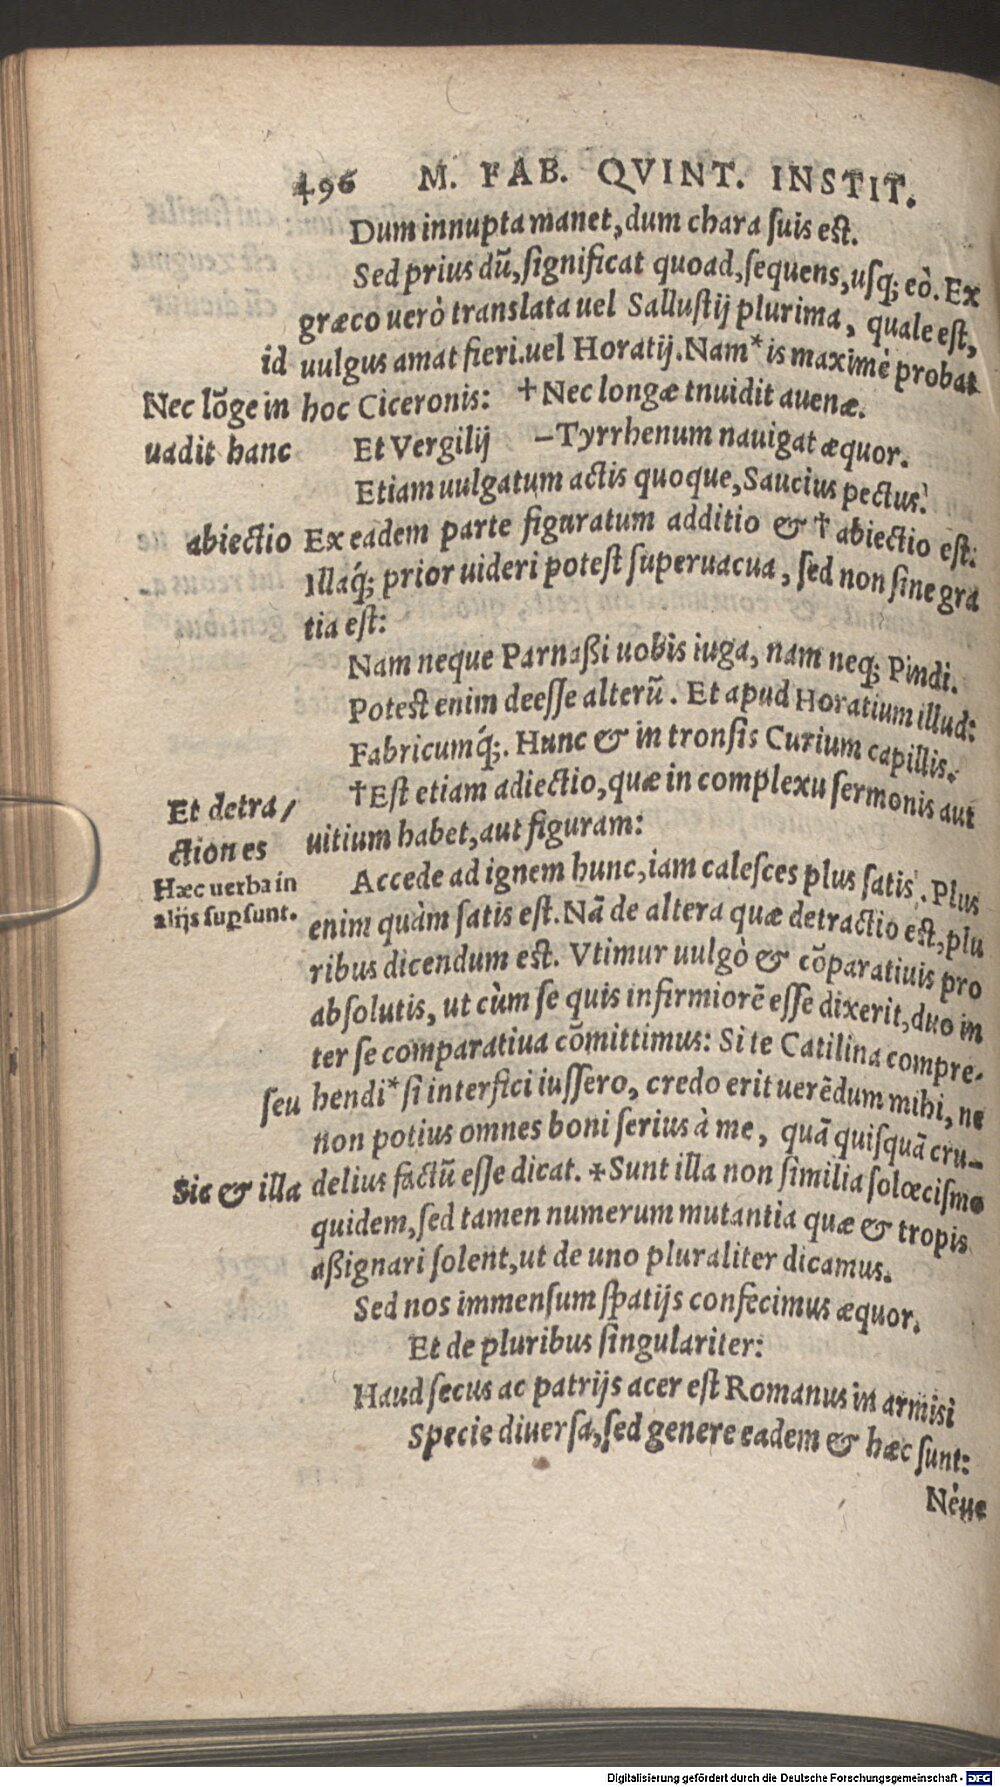 496 M. FAB. QVINT. INSTIT.
Dum innupta manet, dum chara ſuis eſt.
Sed prius dū, ſignificat quoad, ſequens, uſq; eò. Ex
græco uerò translata uel Salluſtij plurima, quale eſt,
id uulgus amat fieri. uel Horatij. Nam* is maximè probat
Nec lōge in hoc Ciceronis: †Nec longæ inuidit auenæ.
uadit hanc Et Vergilij –Tyrrhenum nauigat æquor.
Etiam uulgatum actis quoque, Saucius pectus.
abiectio Ex eadem parte figuratum additio & † abiectio eſt:
Illaq́; prior uideri poteſt ſuperuacua, ſed non ſine gra
tia eſt:
Nam neque Parnaßi uobis iuga, nam neq; Pindi.
Poteſt enim deeſſe alterū. Et apud Horatium illud:
Fabricumq́;. Hunc & in tronſis Curium capillis.
†Eſt etiam adiectio, quæ in complexu ſermonis aut
Et detra/
ctiones
uitium habet, aut figuram:
Hæc uerba in
alijs ſup̱ſunt.
Accede ad ignem hunc, iam caleſces plus ſatis. Plus
enim quàm ſatis eſt. Nā de altera quæ detractio eſt, plu
ribus dicendum eſt. Vtimur uulgò & cōparatiuis pro
abſolutis, ut cùm ſe quis infirmiorē eſſe dixerit, duo in
ter ſe comparatiua cōmittimus: Si te Catilina compre-
ſeu hendi* ſi interfici iuſſero, credo erit uerēdum mihi, ne
non potius omnes boni ſerius à me, quā quiſquā cru-
Sic & illa delius factū eſſe dicat. *Sunt illa non ſimilia ſolœciſmo
quidem, ſed tamen numerum mutantia quæ & tropis
aßignari ſolent, ut de uno pluraliter dicamus.
Sed nos immenſum ſpatijs confecimus æquor.
Et de pluribus ſingulariter:
Haud ſecus ac patrijs acer eſt Romanus in armisi
Specie diuerſa, ſed genere eadem & hæc ſunt:
Nèue
Digitalisierung gefördert durch die Deutsche Forschungsgemeinschaft - DFG